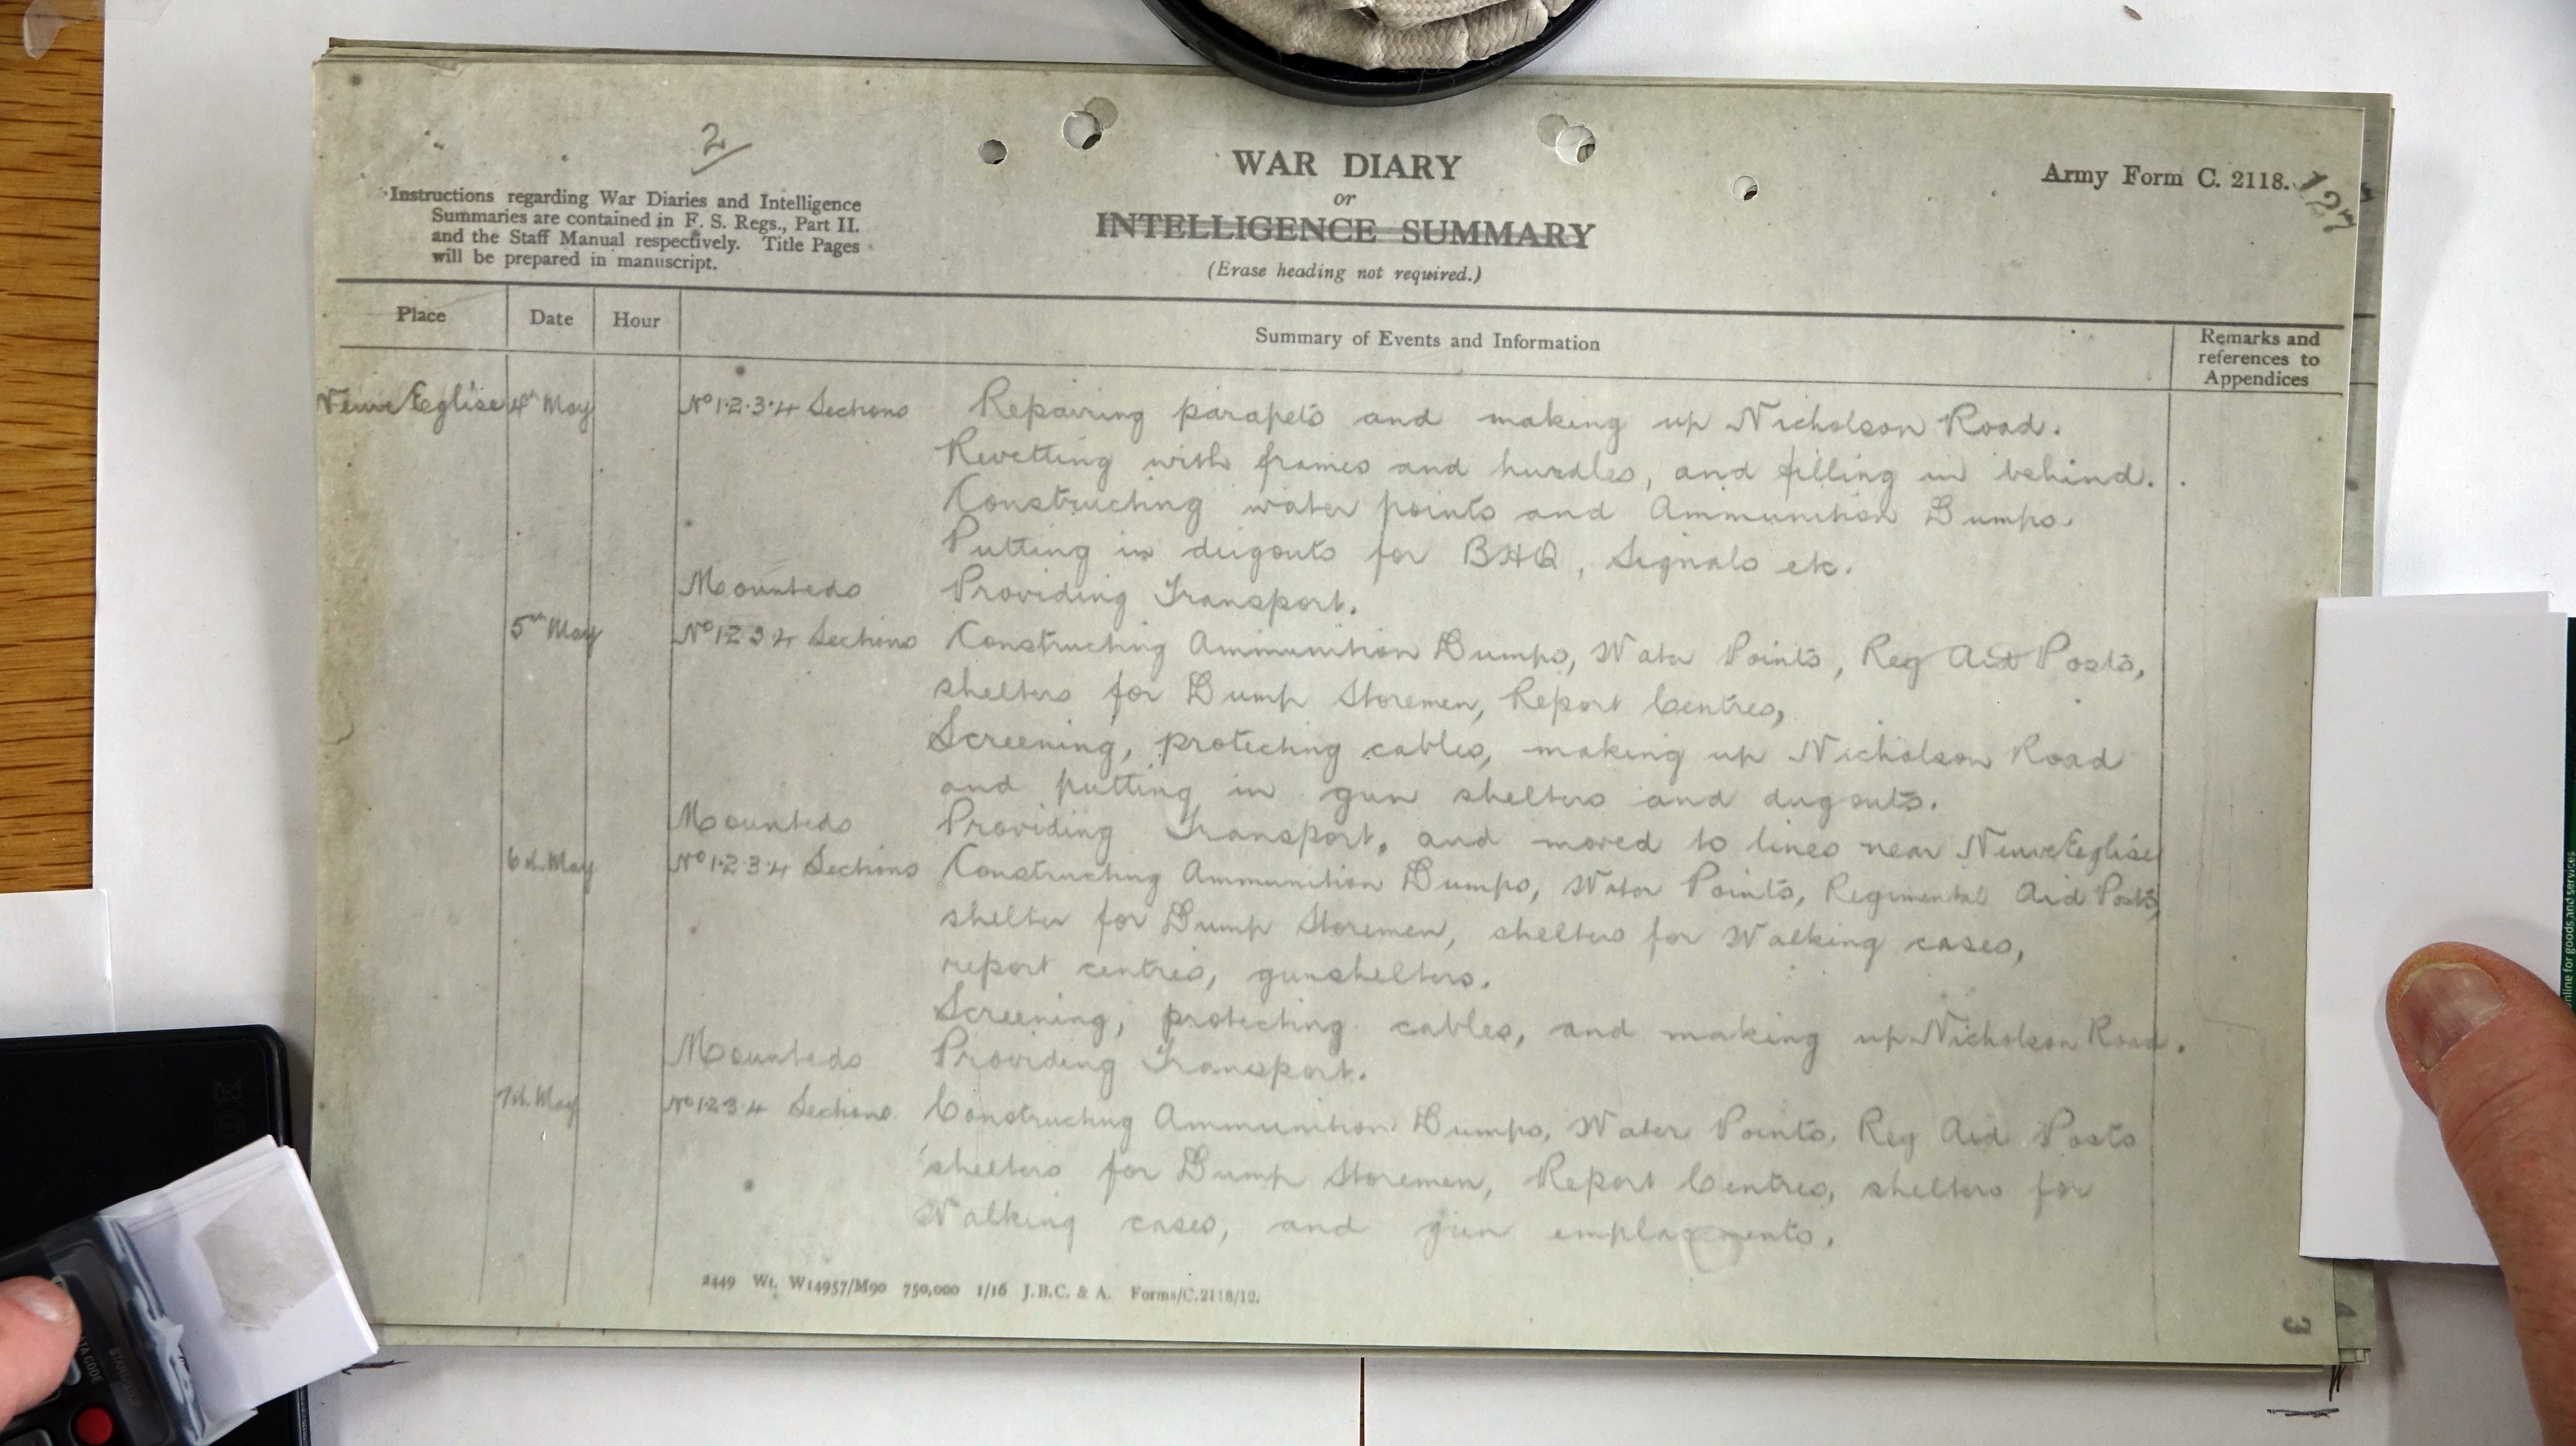 2
WAR DIARY
or
INTELLIGENCE SUMMARY
(Erase heading not required.)
Army Form C. 2118.
127
Instructions regarding War Diaries and Intelligence
Summaries are contained in F. S. Regs., Part II.
and the Staff Manual respectively. Title Pages
will be prepared in manuscript.
Place Date Hour Summary of Events and Information Remarks and references to Appendices
Neuve Eglise 4th May No 1.2.3.4 Sections Repairing parapets and making up Nicholson Road.
Revetting with frames and hurdles, and filling in behind.
Constructing water points and Ammunition Dumps.
Putting in dugouts for BHQ, Signals etc.
Mounteds Providing Transport.
5th May No 1 2 3 4 Sections Constructing Ammunition Dumps, Water Points, Reg Aid Posts,
shelters for Dump Storemen, Report Centres,
Screening, protecting cables, making up Nicholson Road
and putting in gun shelters and dugouts.
Mounteds Providing Transport, and moved to lines near Neuve Eglise
6th May No 1.2.3.4 Sections Constructing Ammunition Dumps, Water Points, Regimental Aid Posts,
shelter for Dump Storemen, shelters for Walking cases,
report centres, gunshelters.
Screening, protecting cables, and making up Nicholson Road.
Mounteds Providing Transport.
7th May No 1.2.3.4 Sections. Constructing Ammunition Dumps, Water Points, Reg Aid Posts
shelters for Dump Storemen, Report Centres, shelters for
Walking cases, and gun emplacements.
2449 Wt. W14957/M90 750,000 1/16 J.B.C. & A. Forms/C.2118/12.
3
4
online for goods and services
DATA CODE
START/STOP